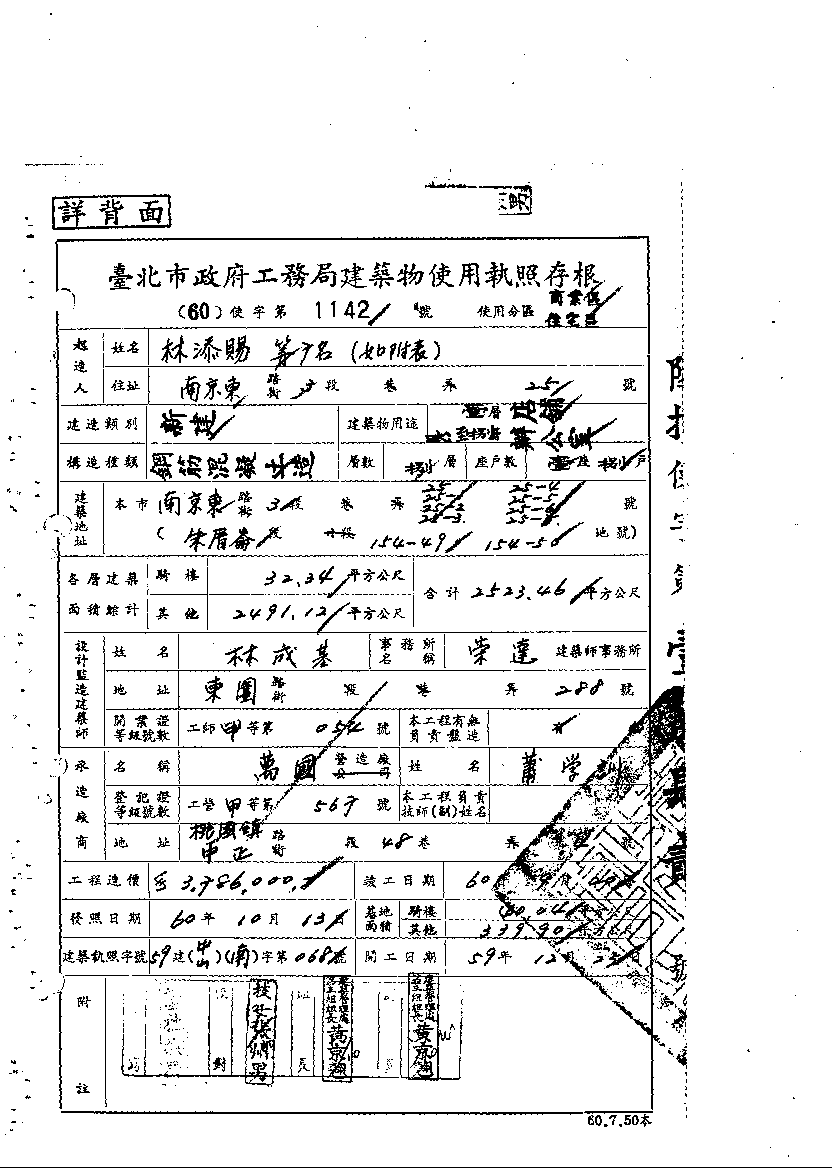 男
詳背面
臺北市政府工務局建築物使用執照存根
(60)使字第 1142 號 使用分區 商業區
住宅區
起造人 姓名 林添賜 等 名(如附表)
住址 南京東 路街 3 段 巷 弄 25 號
建造類別 新建 建築物用途 壹層店舖
至捌層辦公室
構造種類 鋼筋混凝土造 層數 捌 層 座戶數 壹座 捌戶
建築地址 本市 南京東 路街 3 段 巷 弄 25 25-1 25-2 25-3 25-4 25-5 25-6 號
( 朱厝崙 段 小段 154-49 154-50 地號)
各層建築面積總計 騎樓 32.34 平方公尺 合計 2523.46 平方公尺
其他 2491.12 平方公尺
設計監造建築師 姓名 林成基 事務所名稱 榮達 建築師事務所
地址 東園 路街 段 巷 弄 288 號
開業證等級號數 工師 甲 等第 054 號 本工程有無負責監造
承造廠商 名稱 萬國 營造廠公司 姓名 蕭学
登記證等級號數 工營 甲 等第 567 號 本工程負責技師(副)姓名
地址 桃園鎮中正 路街 段 48 巷 弄 號
工程造價 3,786,000 竣工日期 60
發照日期 60 年 10 月 13 日 基地面積 騎樓
其他 339.90
建築執照字號 59 建(中山)(南)字第 068 號 開工日期 59 年 12 月 23 日
附註
60.7.50本